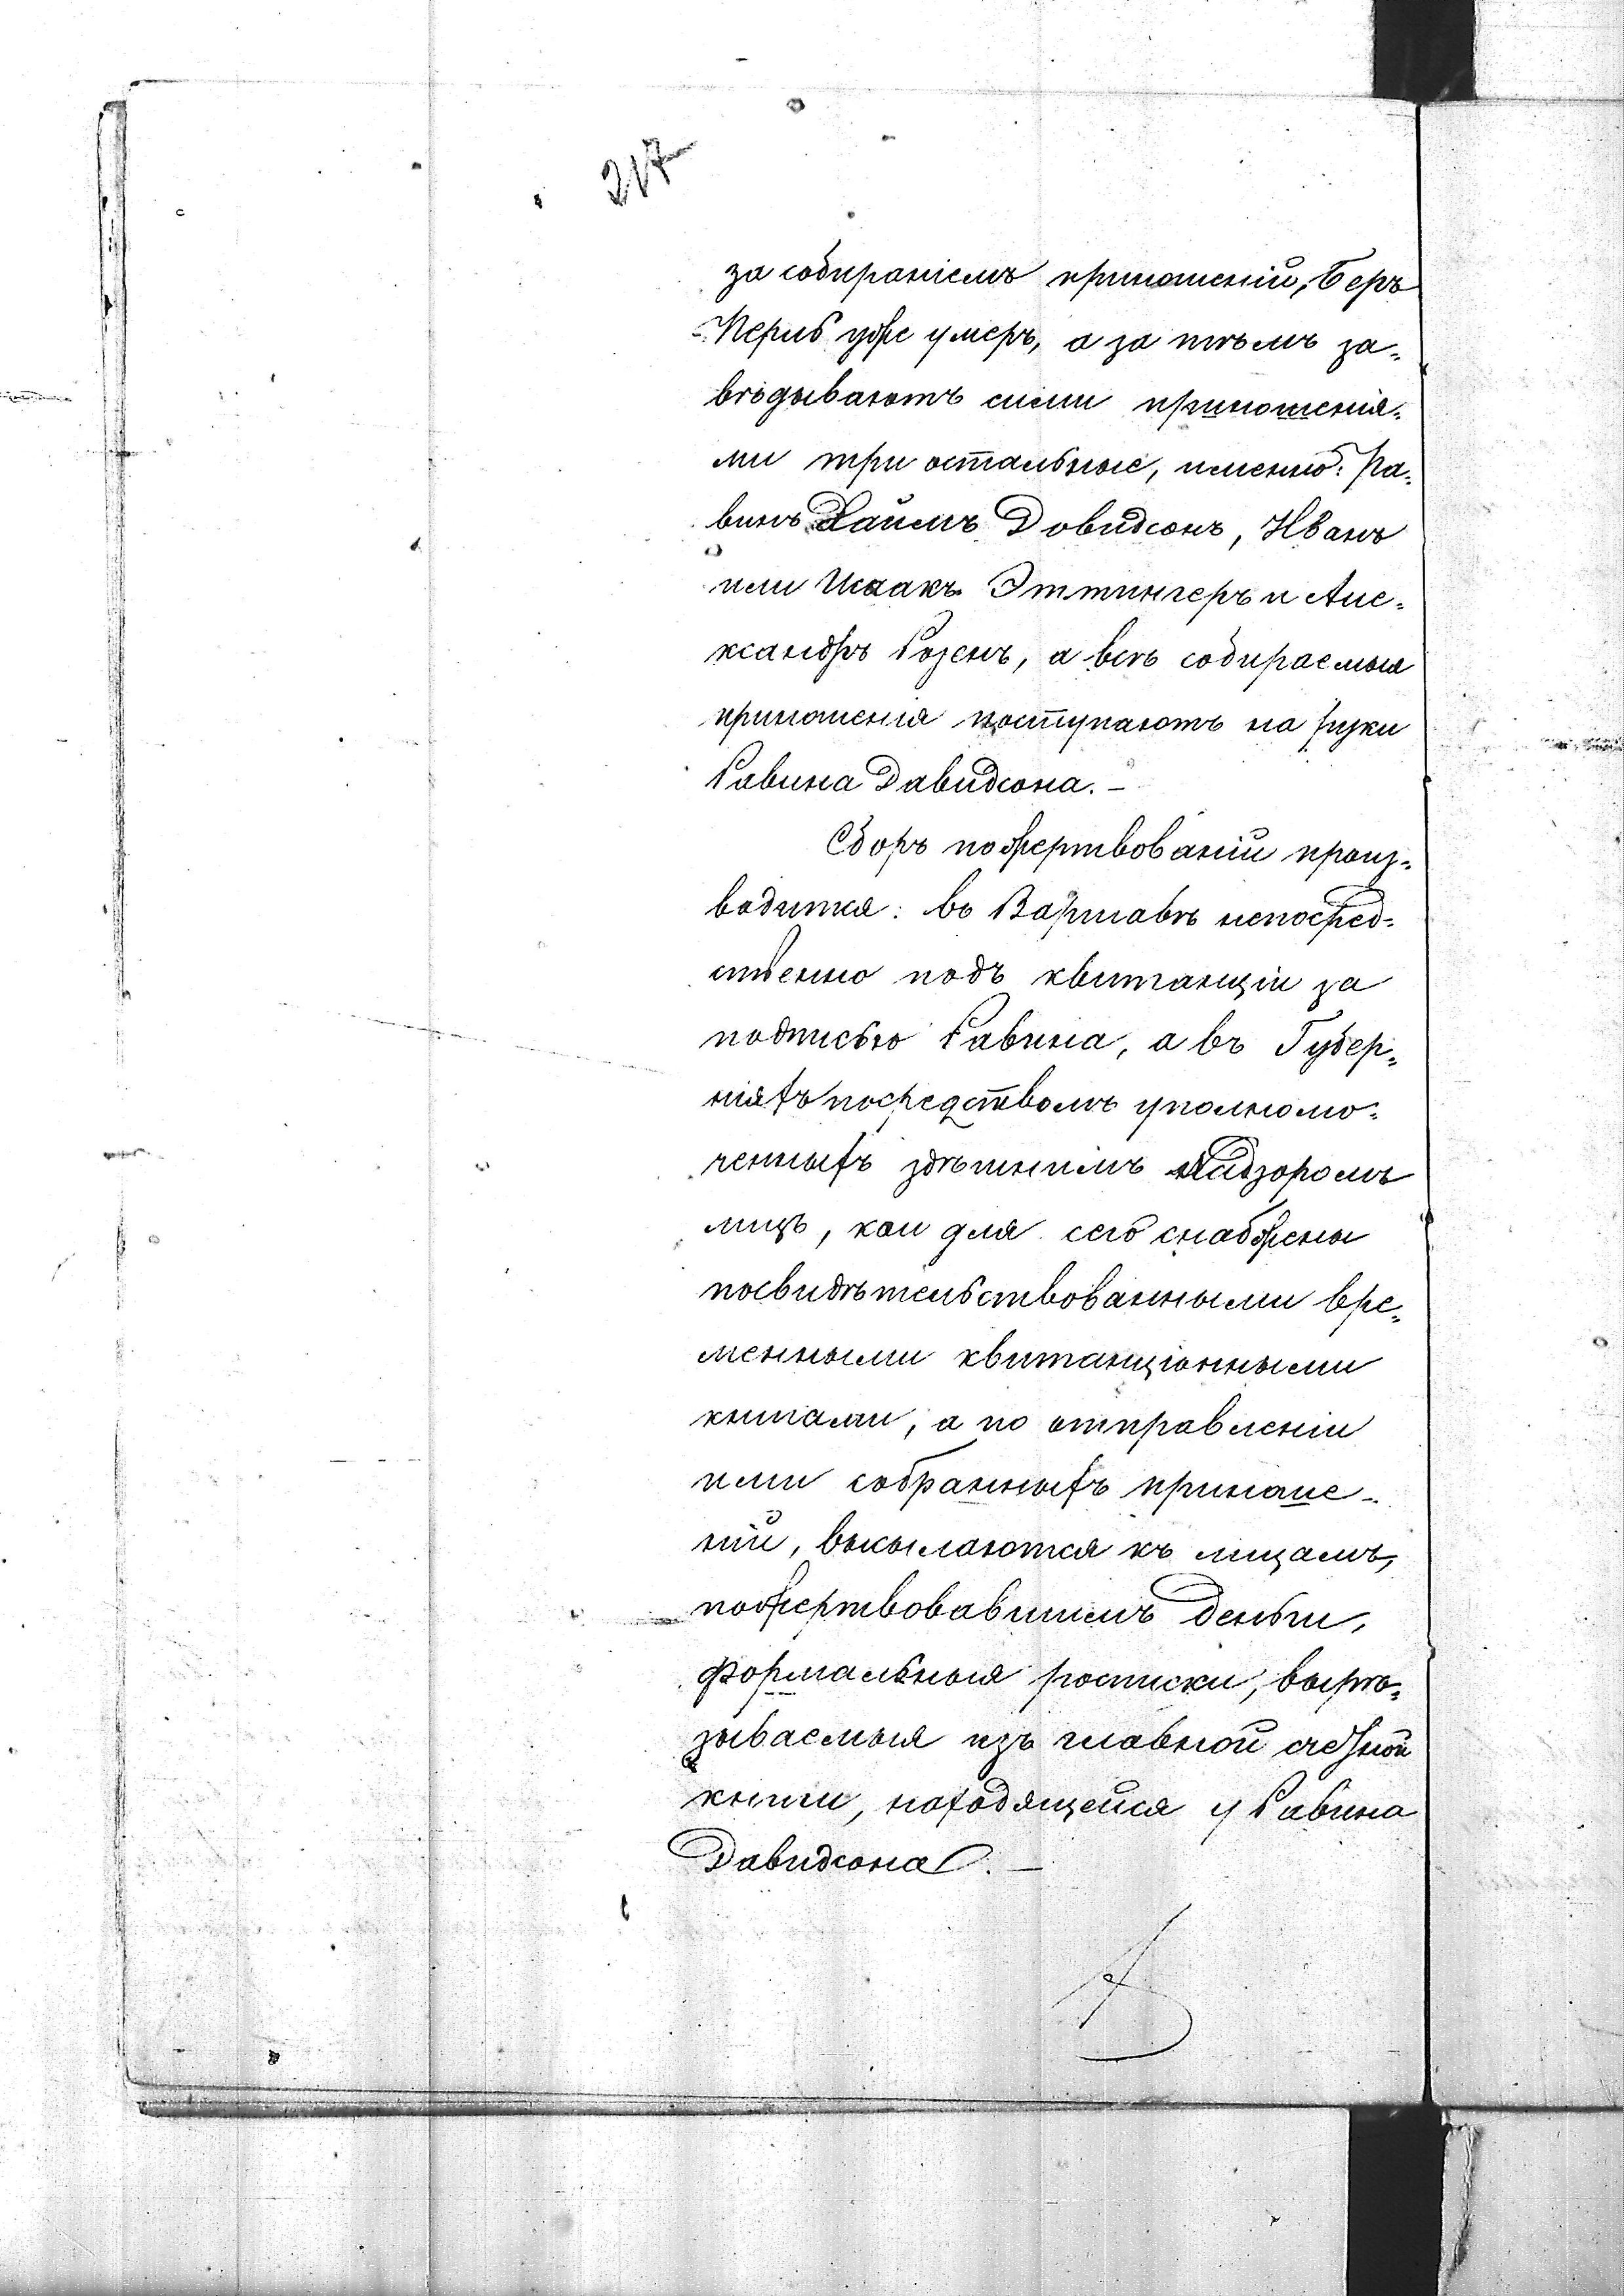 217
за собираніемъ приношеній, Беръ
Перль уже умеръ, а за тѣмъ за-
вѣдываютъ сими приношенія-
ми три остальные, именно: Ра-
винъ Хаимъ Довидсонъ, Иванъ
или Исаакъ Эттингеръ и Але-
ксандръ Розенъ, а всѣ собираемыя
приношенія поступаютъ на руки
Равина Давидсона. —
Сборъ пожертвованій произ-
водится: въ Варшавѣ непосред-
ственно подъ квитанціи за
подписью Равина, а въ Губер-
ніяхъ посредствомъ уполномо-
ченныхъ здѣшнимъ Надзоромъ
лицъ, кои для сего снабжены
посвидѣтельствованными вре-
менными квитанціонными
книгами, а по отправленіи
ими собранныхъ приноше-
ній, высылаются къ лицамъ,
пожертвовавшимъ деньги,
формальныя росписки, вырѣ-
зываемыя изъ главной счетной
книги, находящейся у Равина
Давидсона. —